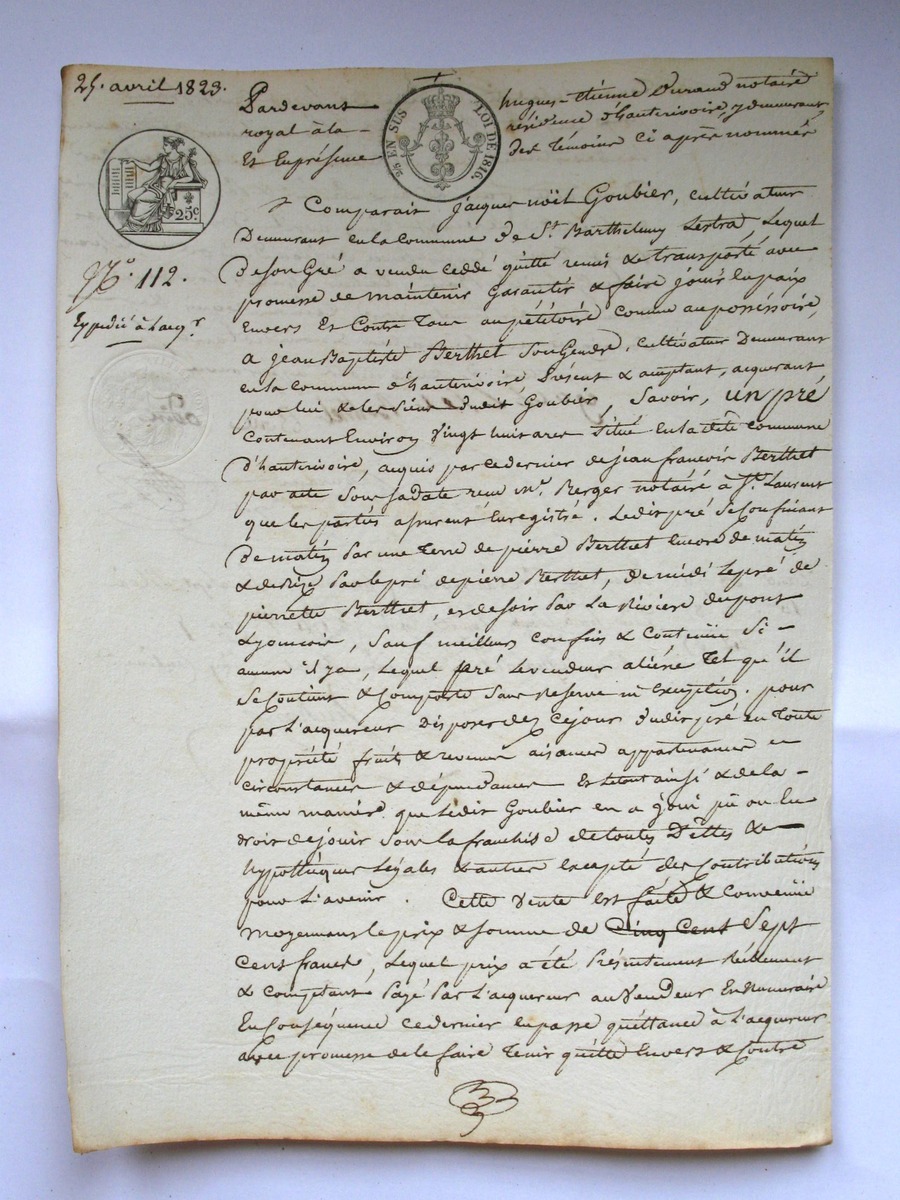 25. avril 1823.
Pardevant hugues-étienne Durand notaire
royal à la résidence d'hauterivoire, y demeurant
Et En présence des témoins Ci après nommés
25 EN SUS LOI DE 1816.
25c
N.o 112.
Expédié à l'acq.r
Comparait jacques nöel Goubier, cultivateur
Demeurant en la commune de St. Barthelemy Lestra, Lequel
de son Gré a vendu cédé quitté remis & transporté avec
promesse de maintenir garantir & faire jouir en paix
Envers Et Contre Tous au pétitoire comme au possessoire,
a jean Baptiste Berthet Son Gendre, cultivateur Demeurant
en la commune d'hauterivoire, Présent & acceptant, acquerant
pour lui & les siens dudit Goubier, Savoir, un pré
Contenant Environ Vingt huit ares Situé en la dite commune
d'hauterivoire, acquis par ce dernier de jean francois Berthet
par acte Sous sa date reçu Me. Berger notaire à St. Laurent
que les parties assurent Enregistré. Ledit pré Se Confinant
De matin par une terre de pierre Berthet Encore de matin
& de Bize Par le pré de pierre Berthet, de midi Le pré de
pierrette Berthet, et de soir Par La Riviere du pont
Lyonnois, Sauf meilleurs confins & Contenüe Si
aucuns il y a, Lequel pré Le vendeur aliéne Tel qu'il
Se Contient & Comporte Sans Reserve ni Exception. pour
par L'acquereur Disposer dès Ce jour dudit pré en toute
propriété fruits & revenus aisances appartenances
circonstances & dépendances Et le tout ainsi & de la
même maniere que Ledit Goubier en a joui pû ou Eu
droit de jouir Sous la franchise de toutes Dettes &
hypothèques Légales & autres Excepté des Contributions
pour L'avenir. Cette Vente Est faite & Convenüe
Moyennant le prix & Somme de Cinq Cent Sept
Cent francs, Lequel prix a été Présentement Réellement
& Comptant Payé Par L'acquereur au Vendeur En Numeraire
En Conséquence ce dernier En passe quittance à L'acquereur
avec promesse de le faire Tenir quitte Envers & Contre